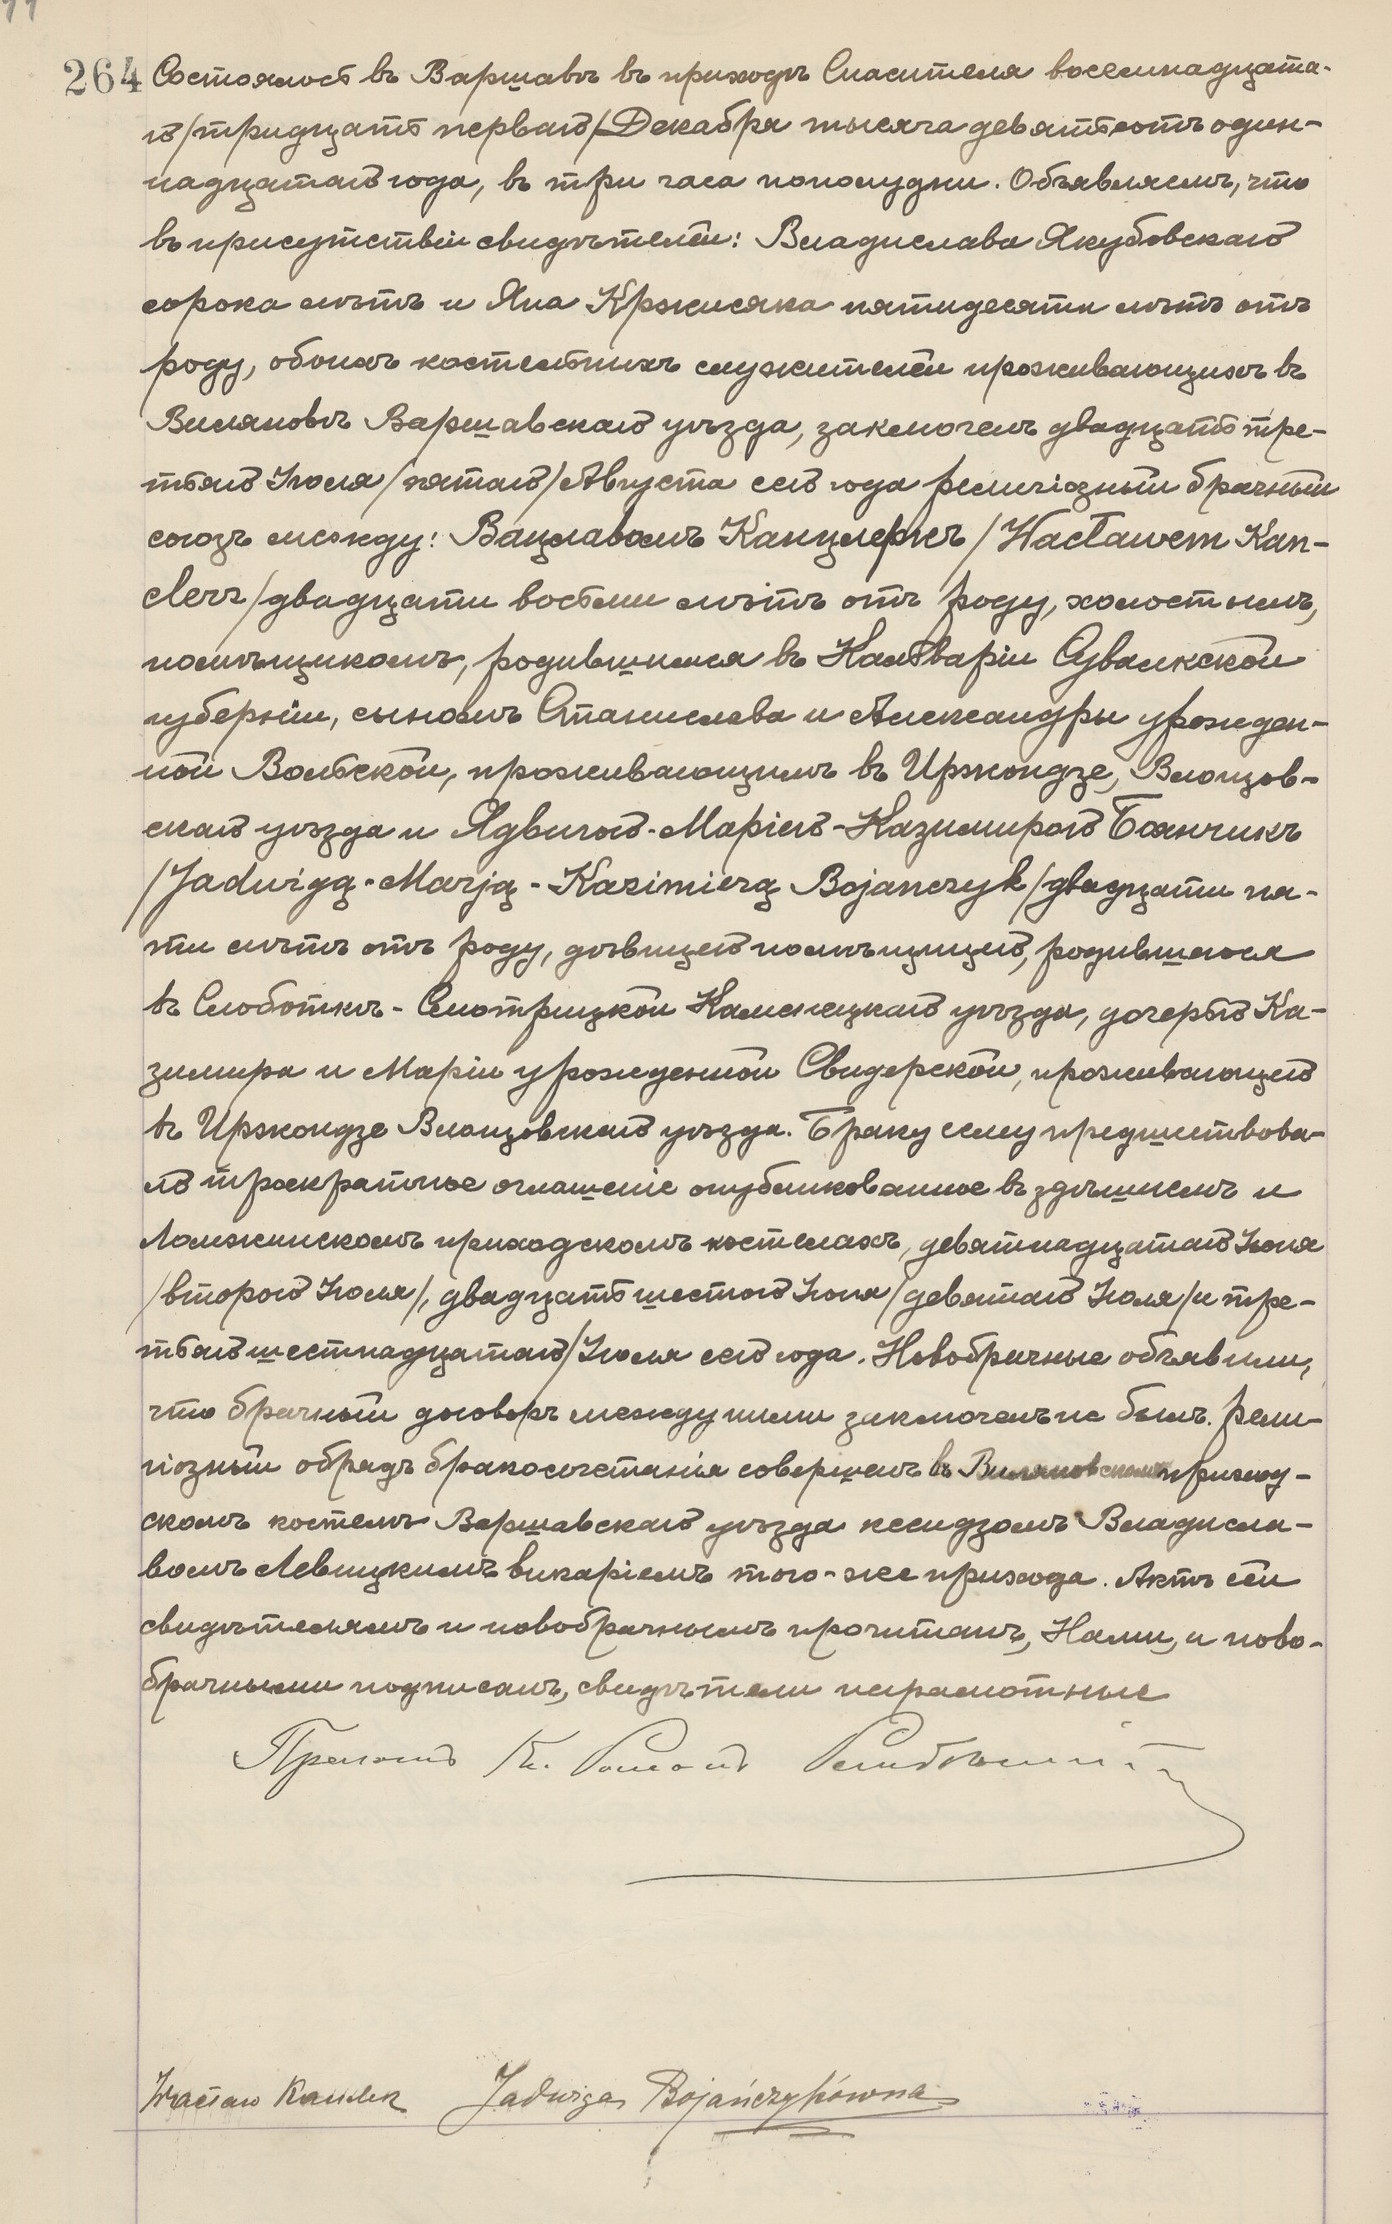 264 Состоялось въ Варшавѣ въ приходѣ Спасителя восемнадцата-
го/тридцать перваго/Декабря тысяча девятьсотъ один-
надцатаго года, въ три часа пополудни. Объявляемъ, что
въ присутствіи свидѣтелей: Владислава Якубовскаго
сорока лѣтъ и Яна Кржисяка пятидесяти лѣтъ отъ
роду, обоихъ костельныхъ служителей проживающихъ въ
Виляновѣ Варшавскаго уѣзда, заключенъ двадцать тре-
тьяго Іюля/пятаго/Августа сего года религіозный брачный
союзъ между: Вацлавомъ Канцлеръ/Wacławem Kan-
clerz/двадцати восьми лѣтъ отъ роду, холостымъ,
помѣщикомъ, родившимся въ Кальваріи Сувалкской
губерніи, сыномъ Станислава и Александры урожден-
ной Вольской, проживающимъ въ Иржондзе, Влощов-
скаго уѣзда и Ядвигою-Маріею-Казимирою Боянчикъ
/Jadwigą-Marją-Kazimierą Bojanczyk/двадцати пя-
ти лѣтъ отъ роду, дѣвицею помѣщицею, родившеюся
въ Слоботкѣ-Смотрицкой Каменецкаго уѣзда, дочерью Ка-
зимира и Маріи урожденной Свидерской, проживающею
въ Иржондзе Влощовскаго уѣзда. Браку сему предшествова-
ло троекратное оглашеніе опубликованное въ здѣшнемъ и
Ломжинскомъ приходскомъ костелахъ, девятнадцатаго Іюня
/второго Іюля/, двадцать шестого Іюня/девятаго Іюля/и тре-
тьяго шестнадцатаго/Іюля сего года. Новобрачные объявили,
что брачный договоръ между ними заключенъ не былъ. Рели-
гіозный обрядъ бракосочетанія совершенъ въ Виляновскомъ приход-
скомъ костелѣ Варшавскаго уѣзда ксендзомъ Владисла-
вомъ Левицкимъ викаріемъ того-же прихода. Актъ сей
свидѣтелямъ и новобрачнымъ прочитанъ, Нами, и ново-
брачными подписанъ, свидѣтели неграмотные
Прелатъ Кс.
Wacław Kanclerz Jadwiga Bojańczykówna